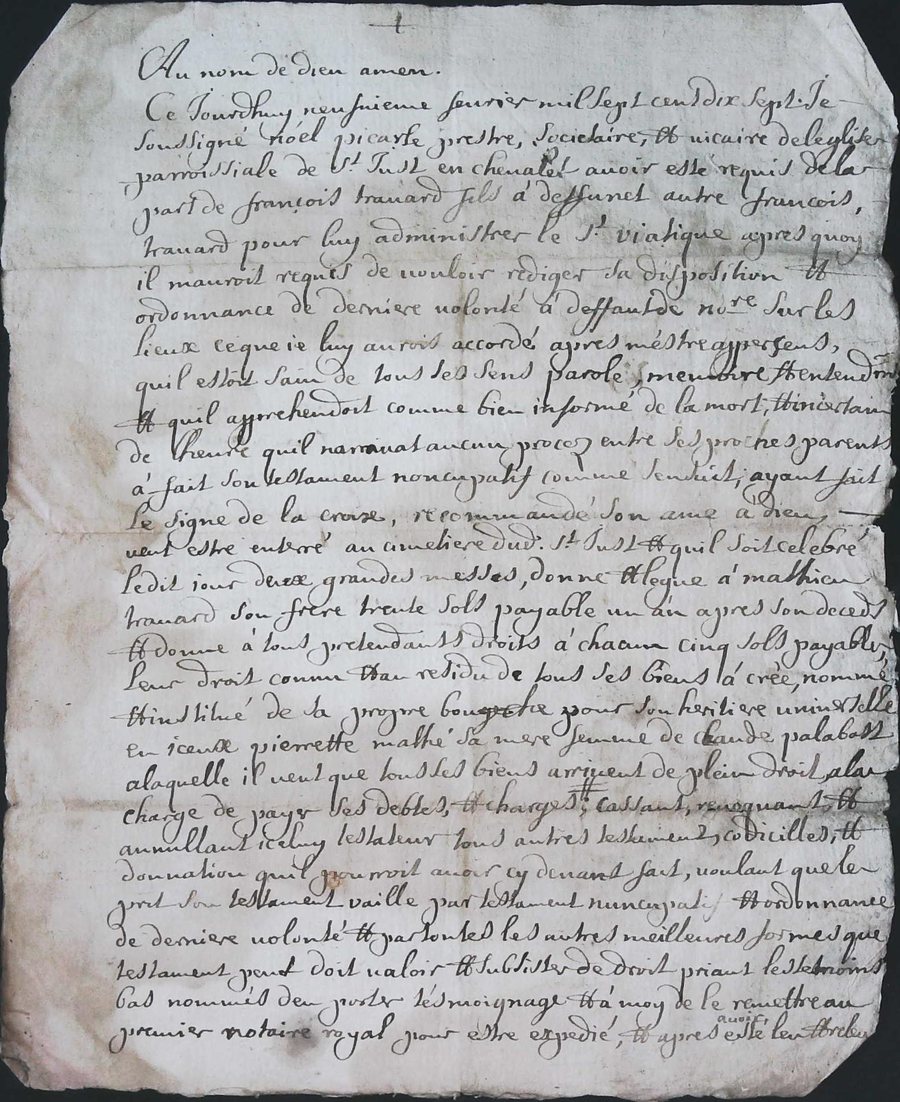 Au nom de dieu amen.
Ce Jourdhuy neufuieme feurier mil sept cent dix sept. Je
soussigné noel picarle prestre, societaire, et uicaire de leglise
parroissiale de St. Just en chevalet auoir esté requis de la
part de françois trauard fils à deffunct autre françois,
trauard pour luy administrer le St. viatique apres quoy
il mauroit requis de uouloir rediger sa disposition et
ordonnance de derniere uolonté à deffaut de nore sur les
lieux ce que ie luy aurois accordé apres méstre apperseus,
quil estoit sain de tous ses sens parole, memoire et entendmt
et quil apprehendoit comme bien informé de la mort, et incertain
de lheure quil narriuat aucun procez entre ses proches parents
à fait son testament noncupatif comme sensuit, ayant fait
le signe de la croix, recommandé son ame à dieu,
ueut estre enterré au cimetiere dud. St. Just et quil soit celebré
ledit iour deux grandes messes, donne et legue à mathieu
trauard son frere trente sols payable un an apres son deceds
et donne à tous pretendants droits à chacun cinq sols payables,
leur droit connu et au residu de tous ses biens à créé, nommé
et institué de sa propre bouche pour son heritiere uniuerselle
en iceux pierrette mathé sa mere femme de claude palabost
a laquelle il ueut que tous ses biens arriuent de plein droit, a la
charge de payer ses debtes, et charges; cassant, reuoquant, et
annullant iceluy testateur tous autres testament, codicilles, et
donnation quil pourroit auoir cy deuant fait, uoulant que le
prit son testament vaille par testament nuncupatif et ordonnance
de derniere uolonté et par toutes les autres meilleures formes que
testament peut doit ualoir et subsister de droit priant les temoins
bas nommés den porter tésmoignage et à moy de le remettre au
premier notaire royal pour estre expedié, et apres auoir esté leu et releu